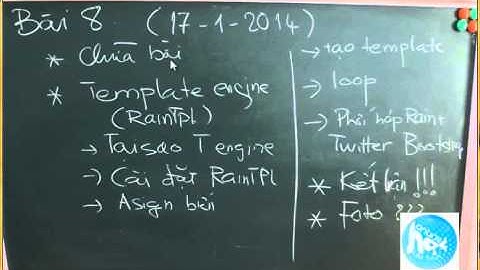 Bài 8 (17-1-2014)
* Chữa bài
* Template engine
(RainTpl)
→ Tại sao T engine
→ Cài đặt RainTPL
→ Asign biến
→ tạo template
→ loop
→ Phối hợp Rain +
Twitter Bootstrap
* Kết bạn !!!
* Foto ???